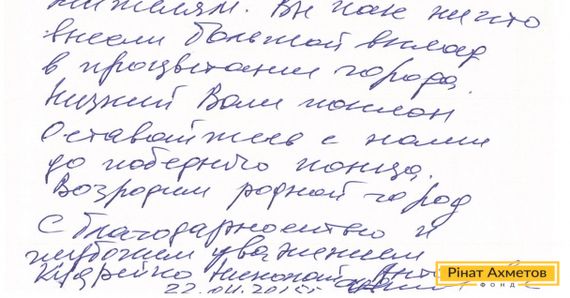 жителям. Вы как никто
внесли большой вклад
в процветании города.
Низкий Вам поклон
Оставайтесь с нами
до победного конца.
Возродим родной город
С благодарностью и
глубоким уважением
Николай
Рінат Ахметов
ФОНД